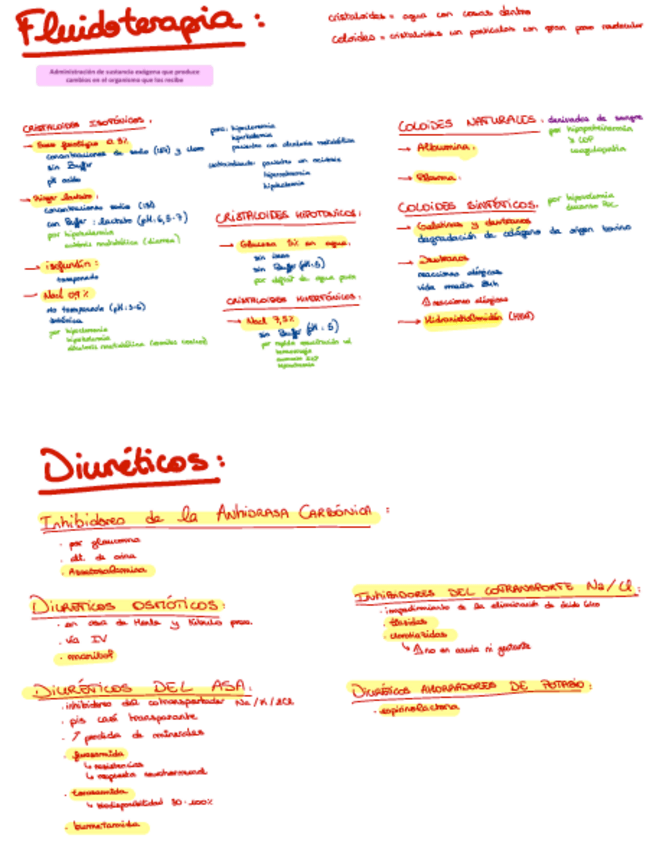 Fluidoterapia:
cristaloides = agua con cosas dentro
coloides = cristaloides con partículas con gran peso molecular
Administración de sustancia exógena que produce
cambios en el organismo que los recibe
CRISTALOIDES ISOTÓNICOS.
→ Suero fisiológico 0.9%
concentraciones de sodio (154) y cloro
sin Buffer
pH ácido
→ Ringer lactato:
concentraciones sodio (130)
con Buffer: lactato (pH: 6,5-7)
por hipovolemia
acidosis metabólica (diarrea)
→ isofundin:
tamponado
→ Nacl 0,9%
no tamponado (pH: 5-6)
isotónica
por hipovolemia
alcalosis metabólica
para: hipovolemia
pacientes con alcalosis metabólica
contraindicado: pacientes con acidosis
CRISTALOIDES HIPOTÓNICOS:
→ Glucosa 5% en agua.
sin iones
sin Buffer (pH: 5)
por déficit de agua pura
CRISTALOIDES HIPERTÓNICOS:
→ Nacl 7,5%
sin Buffer (pH: 5)
por rápida
hemorragia
COLOIDES NATURALES: derivados de sangre
por hipoproteinemia
coagulopatía
→ Albumina.
→ Plasma.
COLOIDES SINTÉTICOS. por hipovolemia
→ Gelatinas y dextranos
degradación de colágeno de origen bovino
→ Dextranos
reacciones alérgicas
vida media
⚠ reacciones alérgicas
→ Hidroxietilalmidón
Diuréticos:
Inhibidores de la ANHIDRASA CARBÓNICA:
· por glaucoma
· alt. de orina
· Acetazolamina
DIURÉTICOS OSMÓTICOS:
· en asa de Henle y túbulo prox.
· vía IV
· manitol
DIURÉTICOS DEL ASA:
· inhibidores del cotransportador Na/K/2Cl
· pis casi transparente
· ↑ perdida de minerales
· furosamida
↳ resistencias
↳ respuesta neurohormonal
· torasamida
↳ biodisponibilidad 80-100%
· bumetamida
INHIBIDORES DEL COTRANSPORTE Na/Cl:
· impedimiento de la eliminación de ácido úrico
· tiazidas
· clorotiazidas
↳ ⚠ no en anuria ni gestante
DIURÉTICOS AHORRADORES DE POTASIO:
· espironolactona